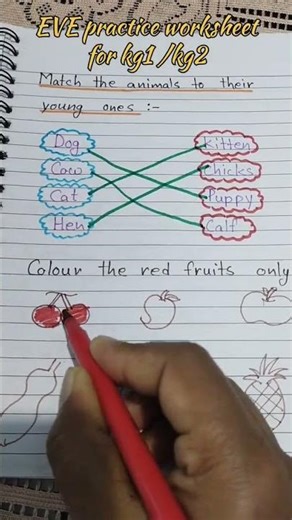 EVE practice worksheet
for kg1 /kg2
Match the animals to their
young ones :-
Dog Kitten
Cow Chicks
Cat Puppy
Hen Calf
Colour the red fruits only